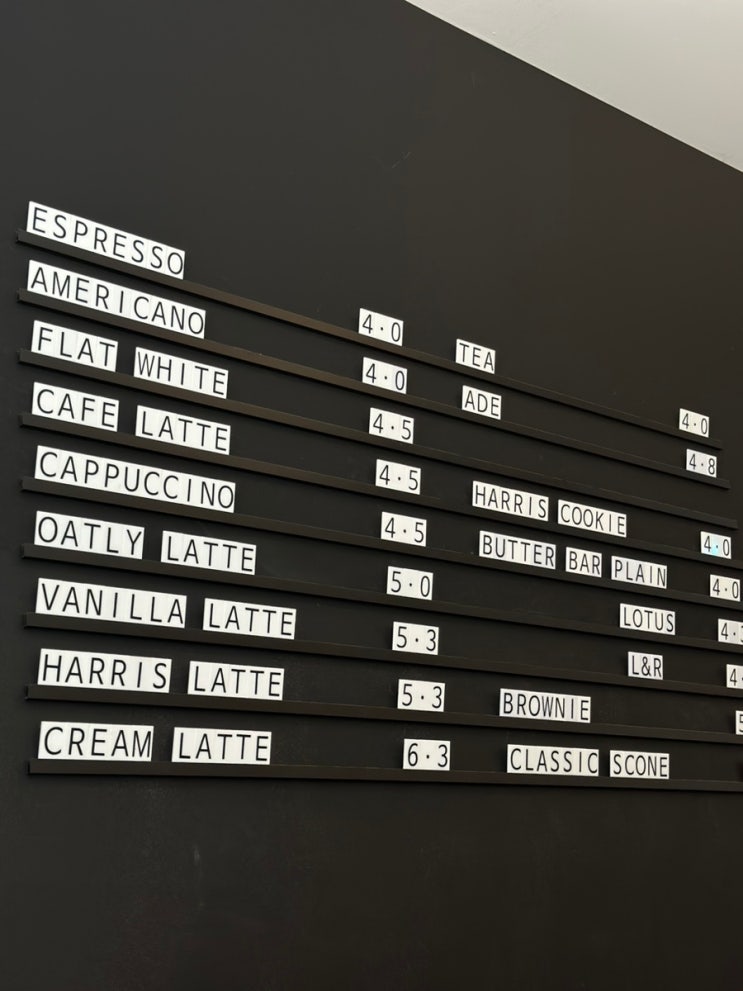 ESPRESSO 4·0 TEA 4·0
AMERICANO 4·0 ADE 4·8
FLAT WHITE 4·5
CAFE LATTE 4·5 HARRIS COOKIE 4·0
CAPPUCCINO 4·5 BUTTER BAR PLAIN 4·0
OATLY LATTE 5·0 LOTUS
VANILLA LATTE 5·3 L&R
HARRIS LATTE 5·3 BROWNIE
CREAM LATTE 6·3 CLASSIC SCONE